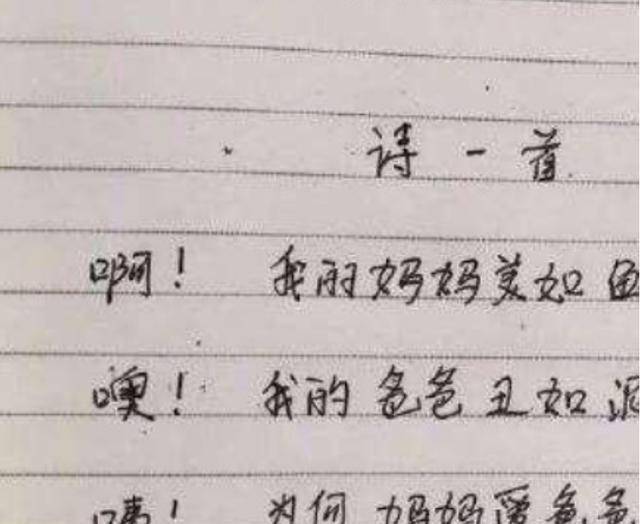 诗一首
啊！ 我的妈妈美如
噢！ 我的爸爸丑如
咦！ 为何妈妈爱爸爸